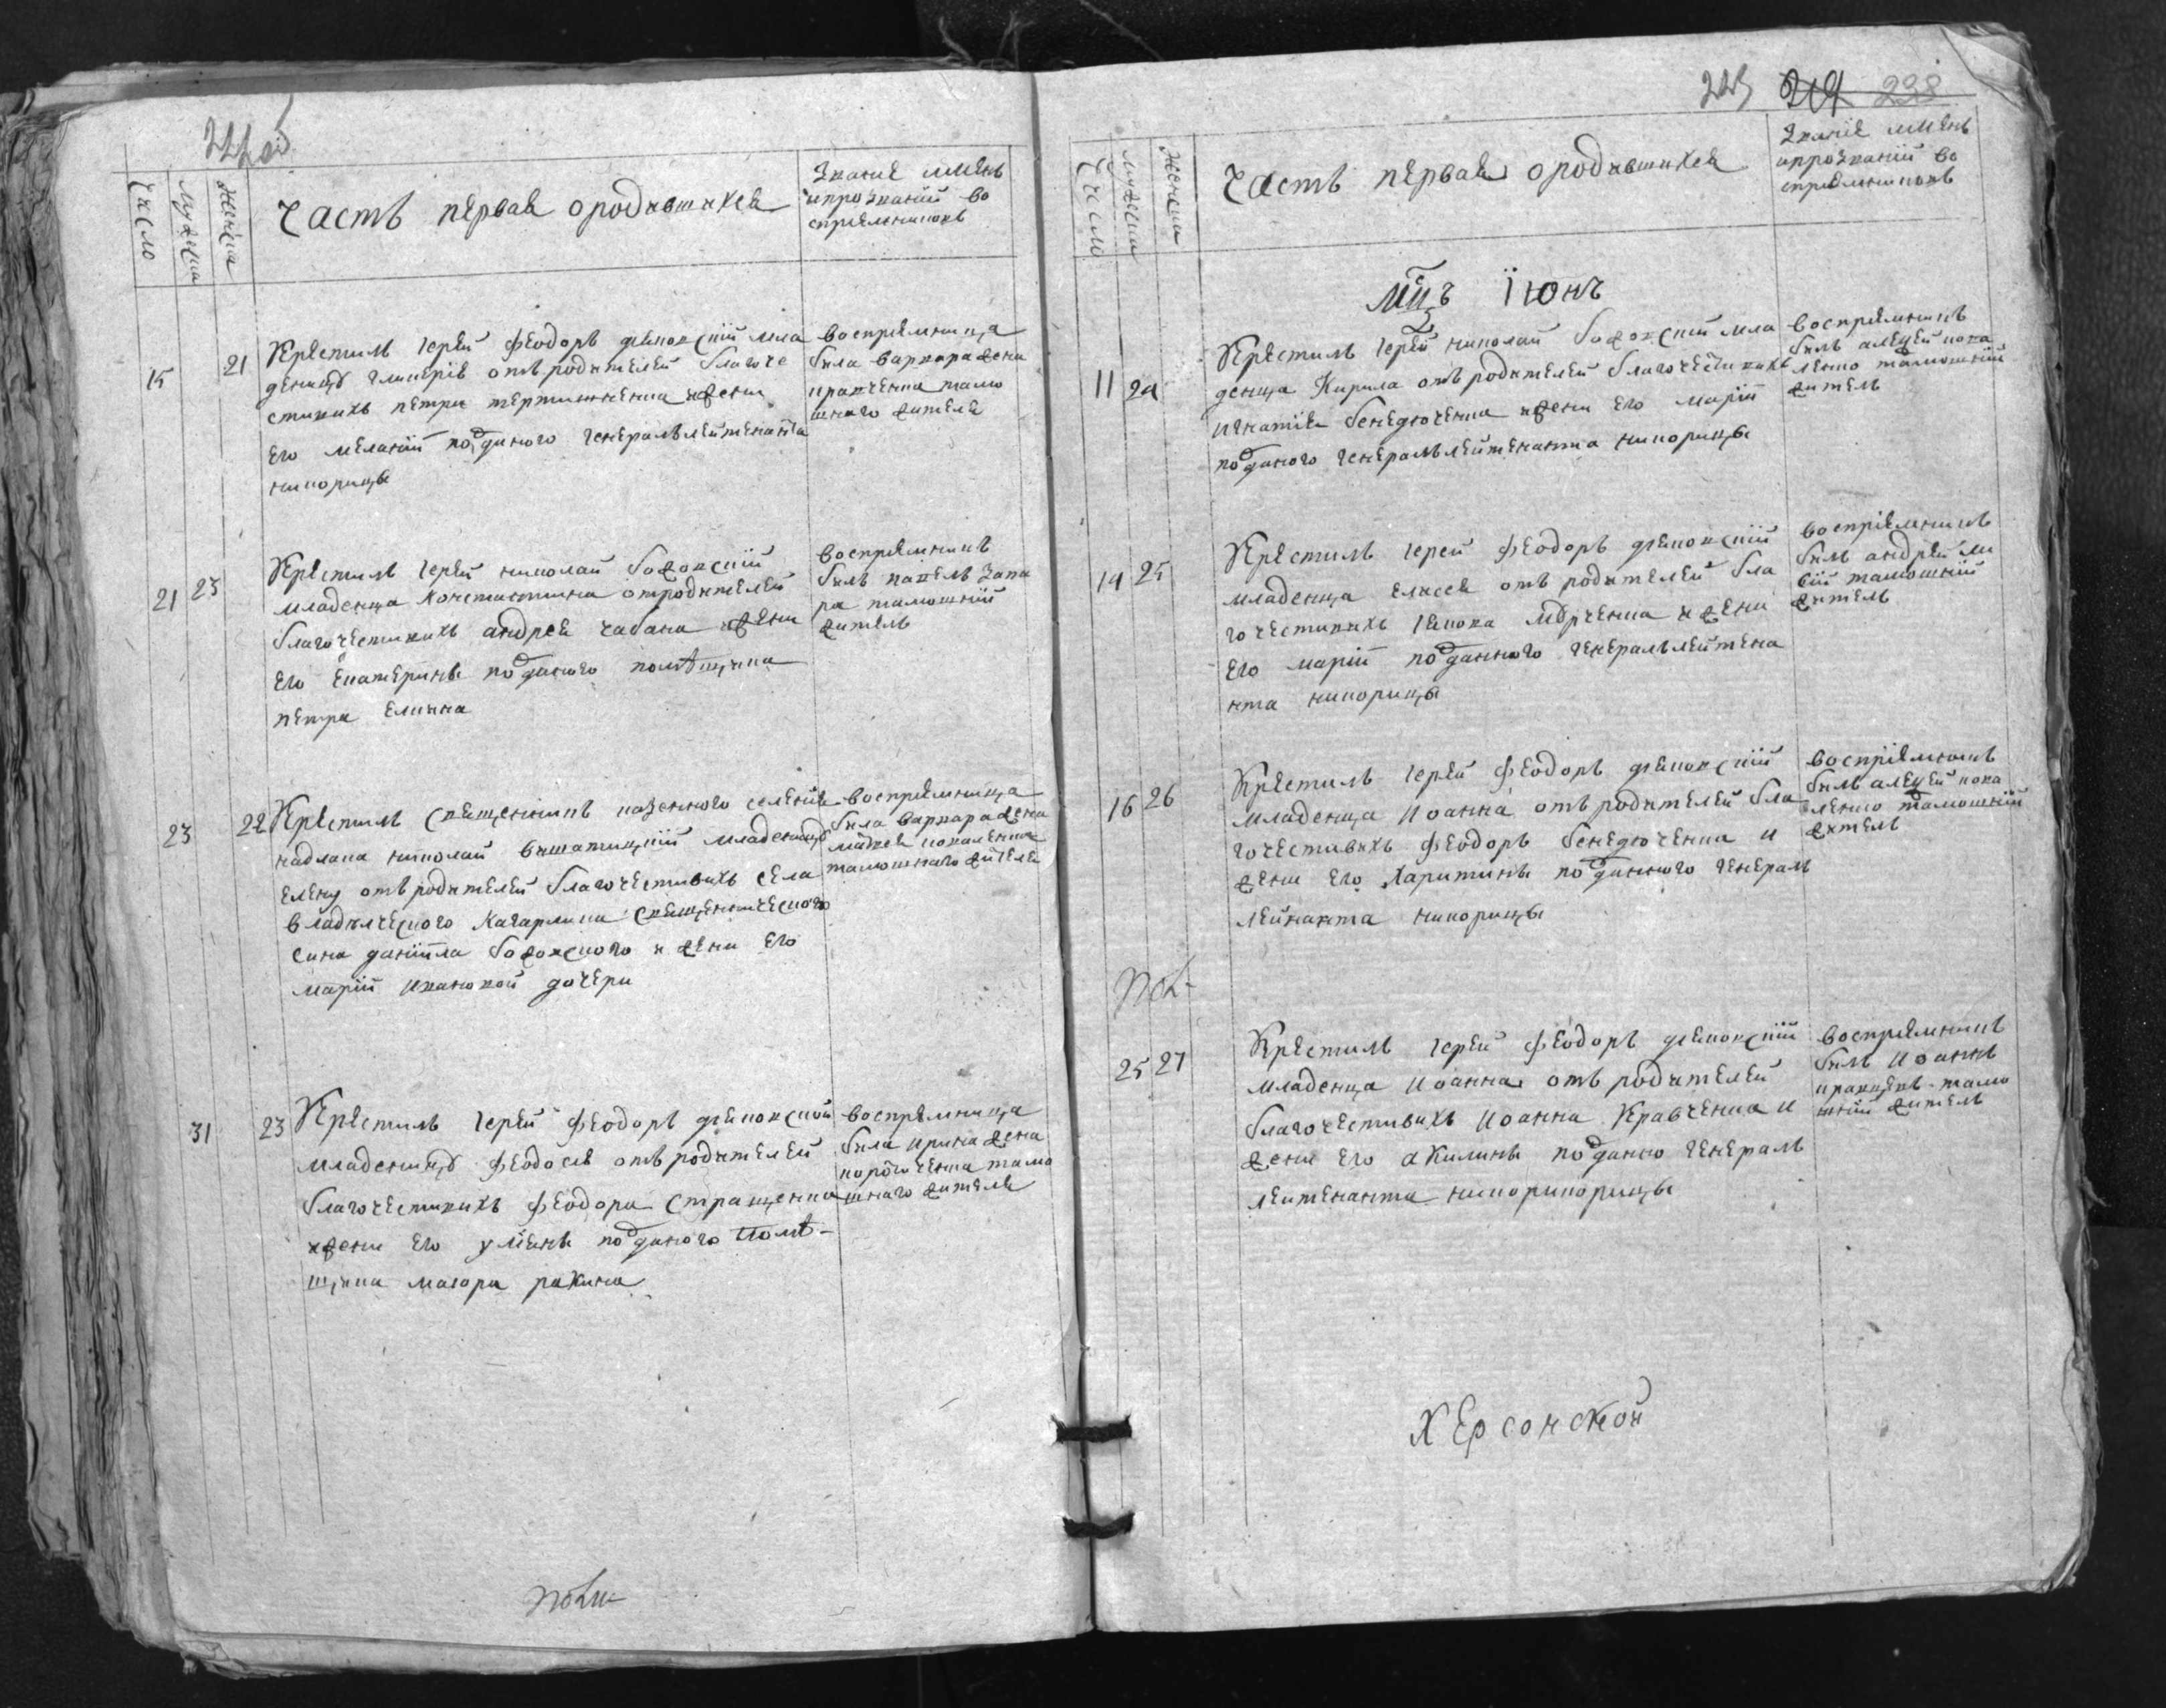 Число
Мужеска
Женска
Часть первая ородившихся
Звание имень
ипрозваній во
спріемниковъ
15
21
Крестилъ іерей Феодоръ діяковскій мла
деницѣ Гликерія отъ родителей благоче
стивихъ петра ижени
его меланіи подданого генералълейтенанта
никорицы
воспріемница
била варвара жена
кравченка тамо
шнаго жителя
21
23
Крестилъ іерей николай божовскій
младенца Константина отродителей
благочестивихъ андрея чабана ижени
его Екатерины подданого помѣщика
петра
воспріемникъ
билъ павелъ заха
ра тамошній
житель
23
22
Крестилъ священникъ казенного селенія
надлака николай младеницѣ
елену отъ родителей благочестивихъ села
владѣлческого Кагарлика священического
сина даніила божовского и жени его
маріи ивановой дочери
воспріемница
била варвара жена
матвея коваленка
тамошнаго жителя
31
23
Крестилъ іерей Феодоръ діяковской
младеницѣ Феодосія отъ родителей
благочестивихъ Феодора Стращенка
ижени его уліяны подданого помѣ-
щика маіора рахина
воспріемница
била ирина жена
тамо
шнаго жителя
223 219 238
Число
Мужеска
Женска
Часть первая ородившихся
Званіе имень
ипрозваній во
спріемниковъ
Мцъ Іюнъ
11
24
Крестилъ іерей николай божовскій мла
денца Кирила отъ родителей благочестивихъ
игнатія бенедюченка ижени его маріи
подданого генералълейтенанта никорицы
воспріемникъ
билъ алеѯей кова
ленко тамошній
житель
14
25
Крестилъ іерей Феодоръ діяковскій
младенца елисея отъ родителей бла
гочестивихъ іякова и жени
его маріи подданного генералълейтена
нта никорицы
воспріемникъ
билъ андрей
тамошній
житель
16
26
Крестилъ іерей Феодоръ діяковскій
младенца Иоанна отъ родителей бла
гочестивихъ Феодоръ бенедюченка и
жени его Харитины подданного генералъ
лейнанта никорицы
воспріемникъ
билъ алеѯей кова
ленко тамошній
житель
25
27
Крестилъ іерей Феодоръ діяковскій
младенца Иоанна отъ родителей
благочестивихъ Иоанна Кравченка и
жени его акилины поданно генералъ
лейтенанта никорикорицы
воспріемникъ
билъ Иоаннъ
кравцевъ тамо
шній житель
Херсонской